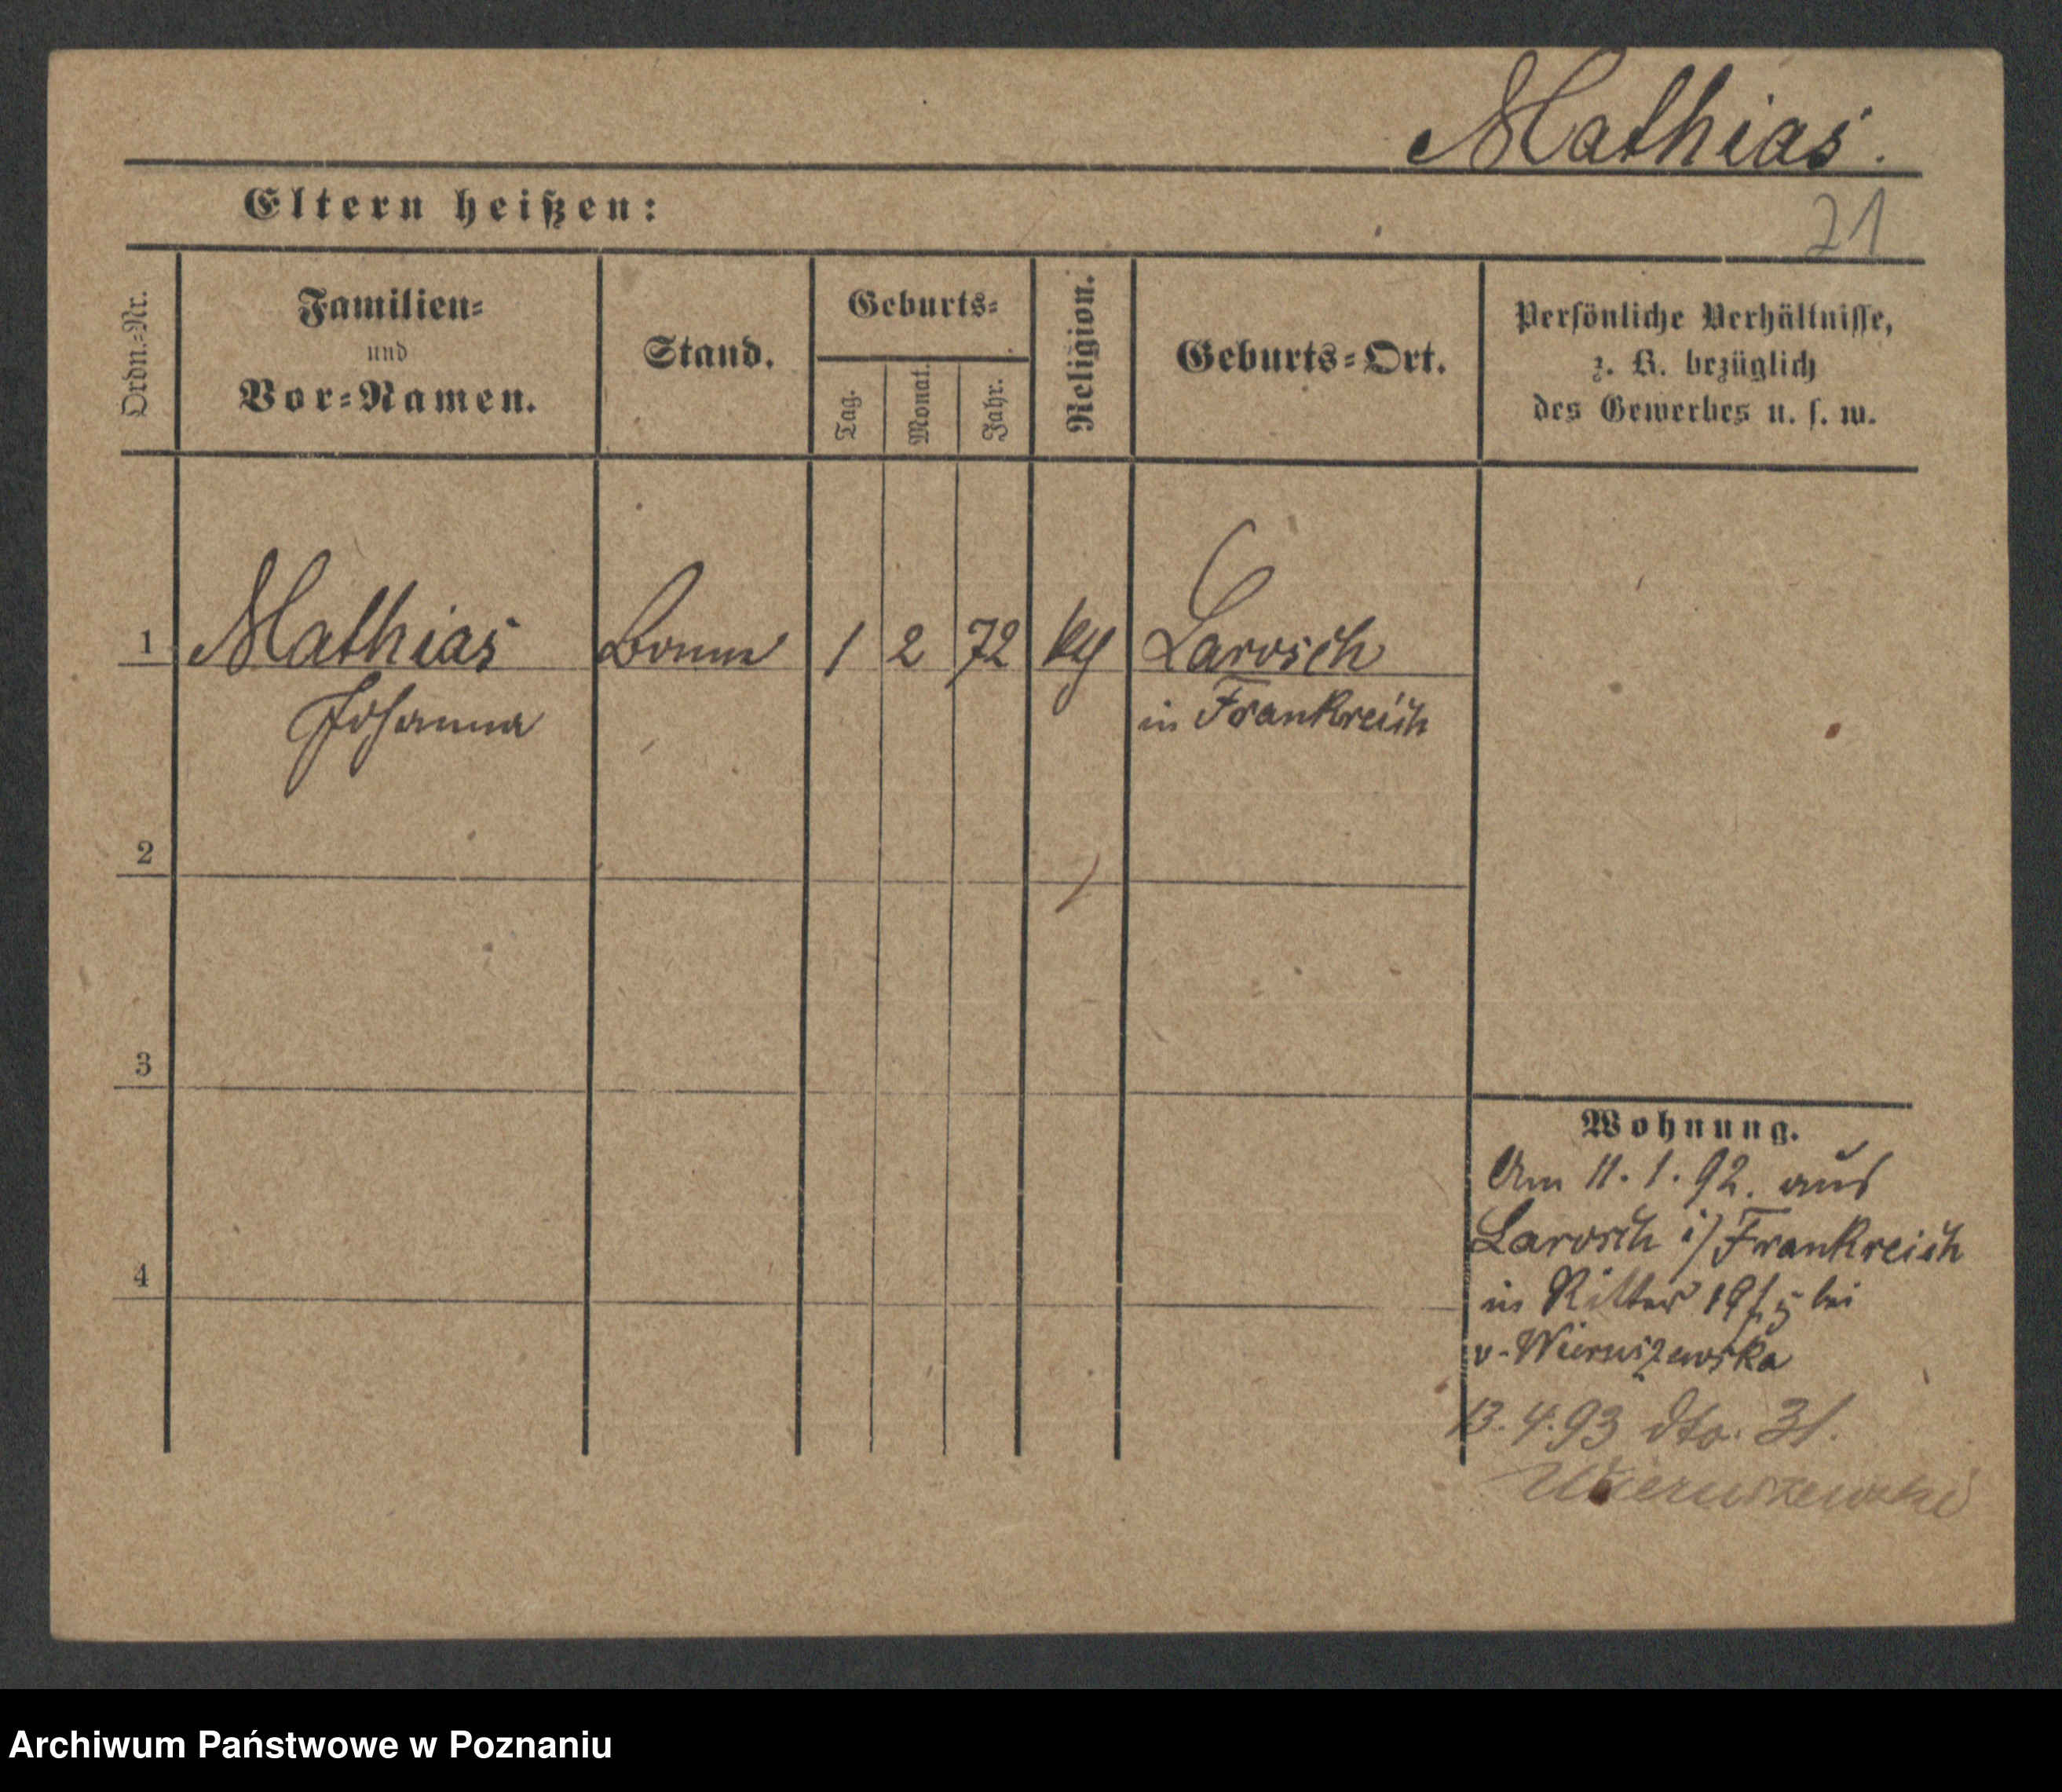 Mathias.
Eltern heißen:
21
Ordn.-Nr.
Familien-
und
Vor-Namen.
Stand.
Geburts-
Tag.
Monat.
Jahr.
Religion.
Geburts-Ort.
Persönliche Verhältnisse,
z. B. bezüglich
des Gewerbes u. s. w.
1 Mathias Bonne 1 2 72 Larosch
Johanna in Frankreich
2
3
4
Wohnung.
Am 11. 1. 92. aus
Larosch i/Frankreich
in Ritter 19 bei
v. Wieruszewska
13. 4. 93 dto. 31.
Wieruszewski
Archiwum Państwowe w Poznaniu